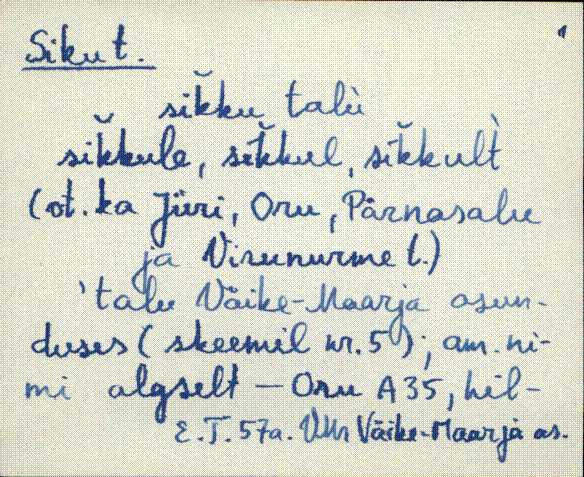 Siku t.
sik̆ku talù
sik̆kule, sik̆kul, sik̆kul̀t
(vt. ka Jüri, Oru, Pärnasalu
ja Virunurme t.)
'talu Väike-Maarja asun-
duses (skeemil nr. 5); am. ni-
mi algselt — Oru A 35, hil-
E. T. 57a. VMr Väike-Maarja as.